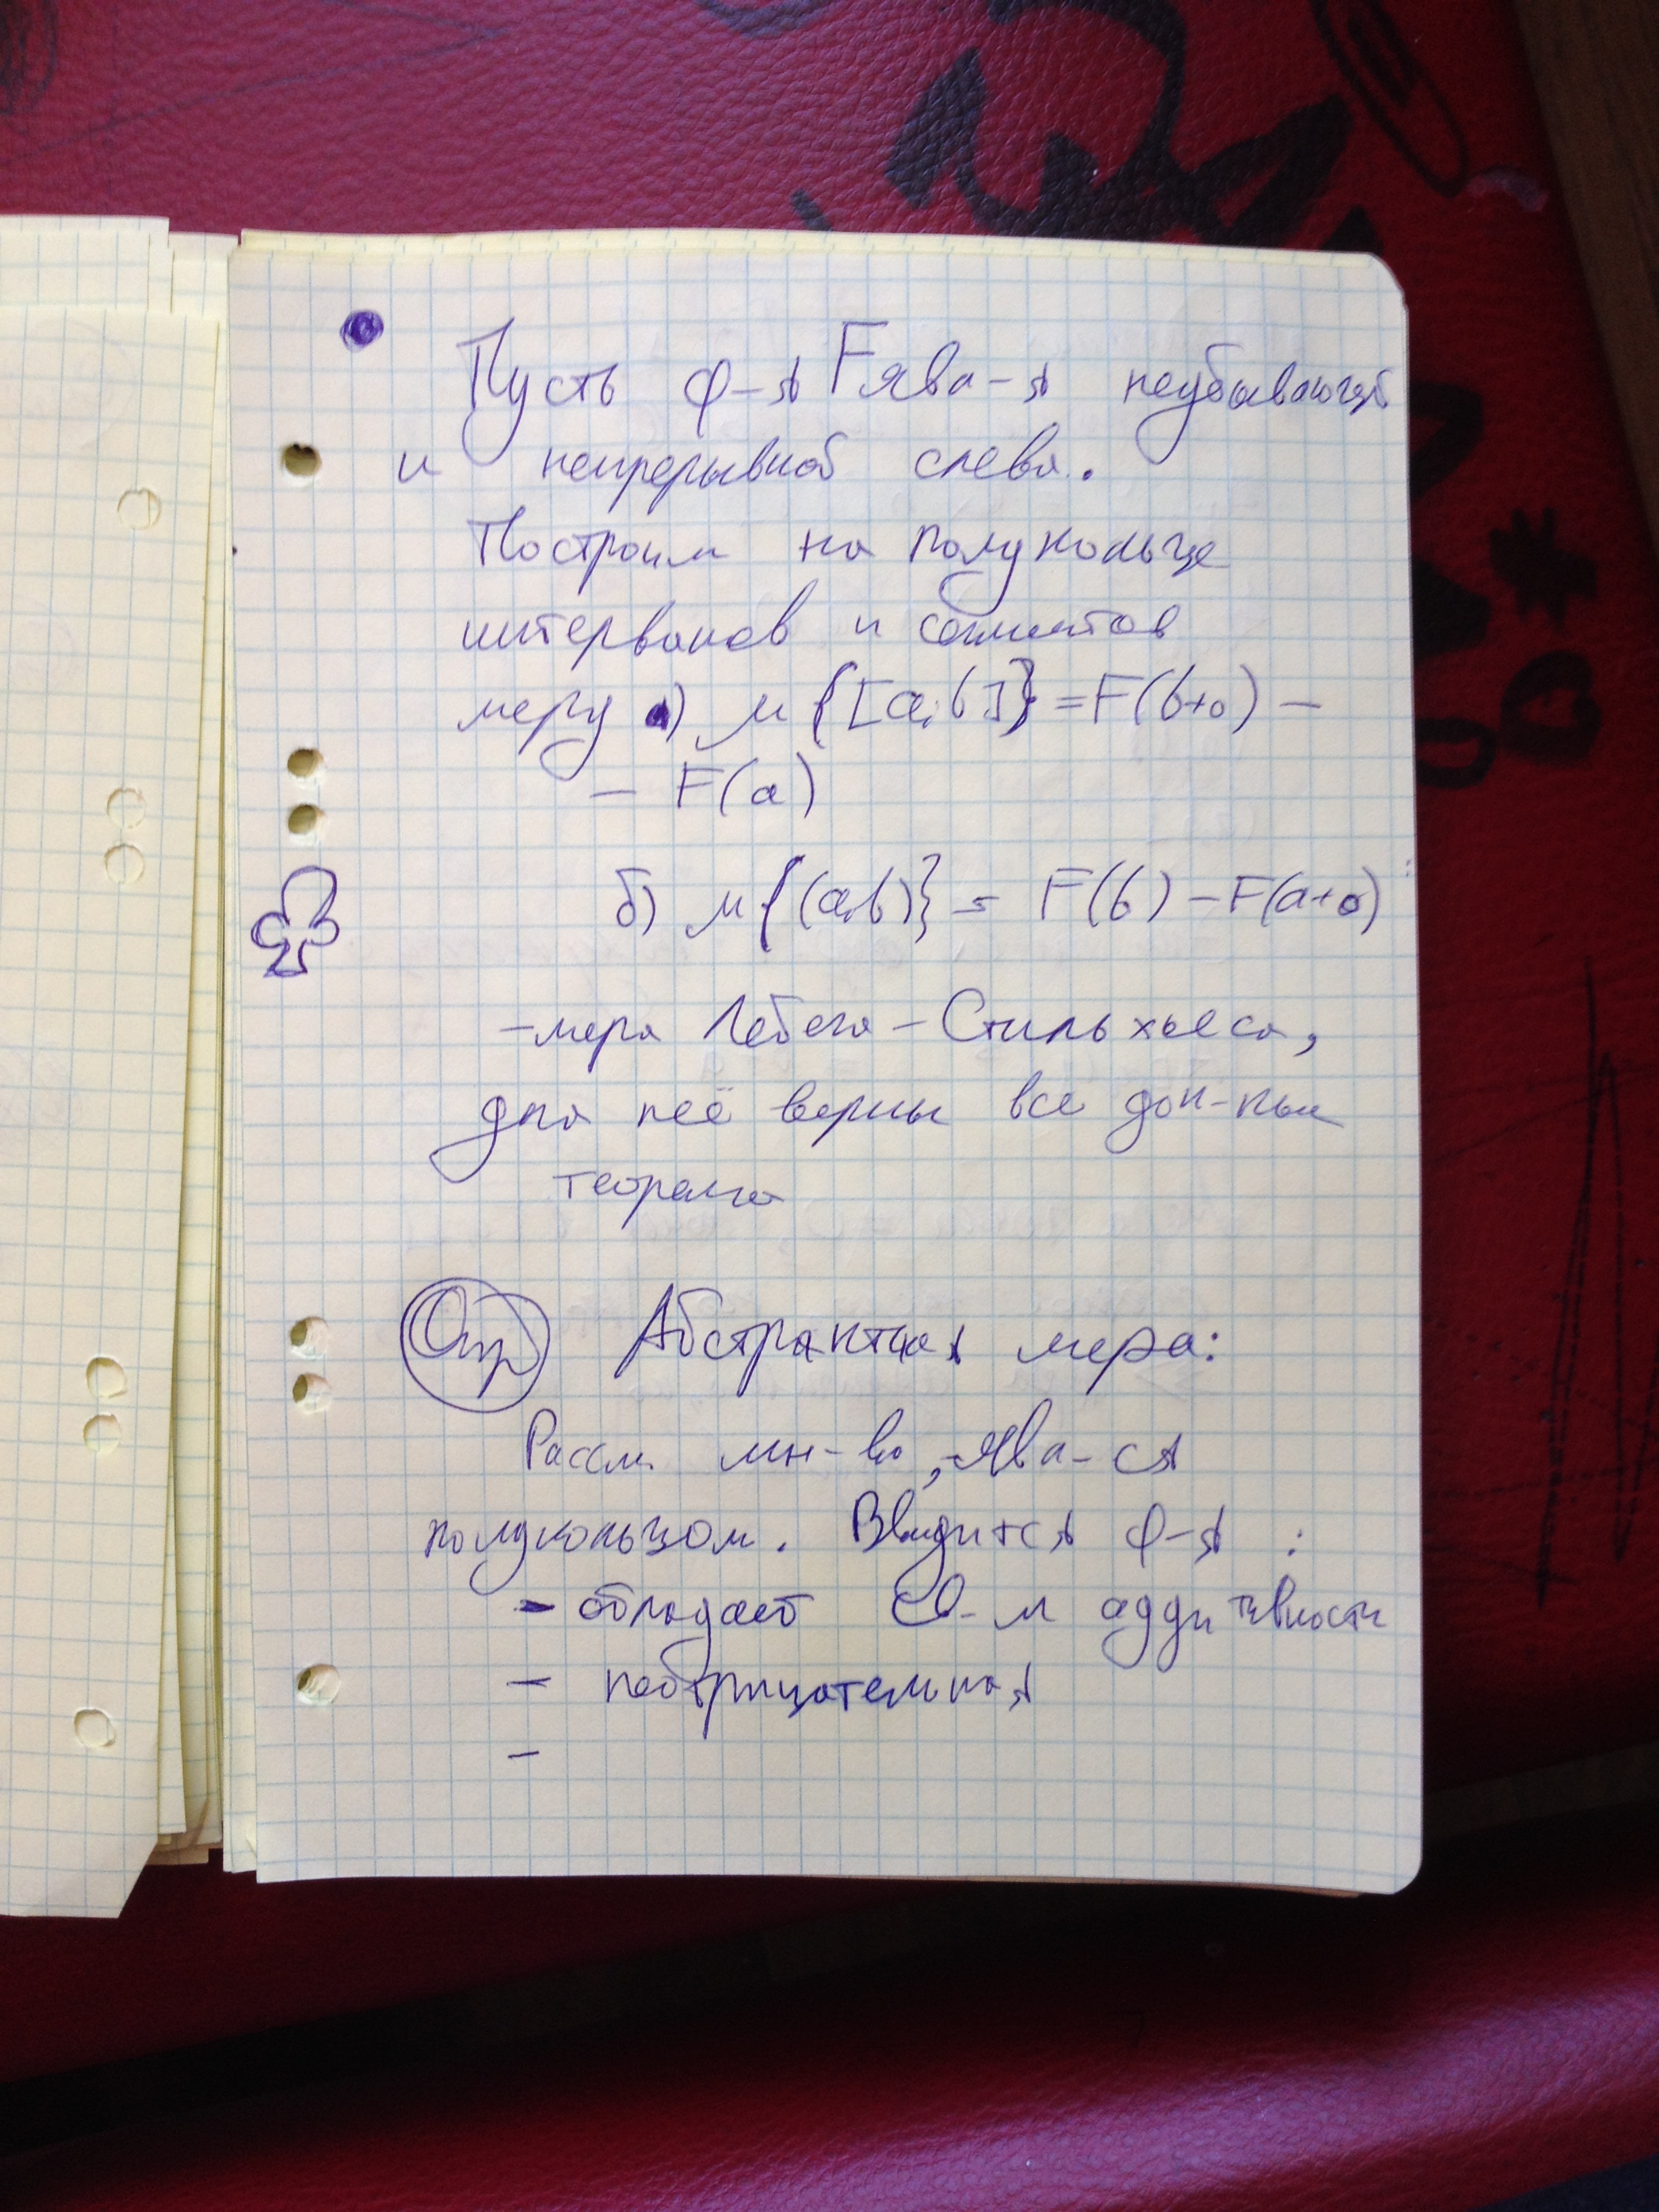 Пусть ф-я F ява-я неубывающей
и непрерывной слева.
Построим на полукольце
интервалов и сегментов
меру а) μ{[a,b]} = F(b+0) –
– F(a)
б) μ{(a,b)} = F(b) – F(a+0)
– мера Лебега – Стильтьеса,
для неё верны все док-ные
теоремы
Опр Абстрактная мера:
Рассм. мн-во, ява-ся
полукольцом. Вводится ф-я :
– обладает св-м аддитивности
– неотрицательная
–